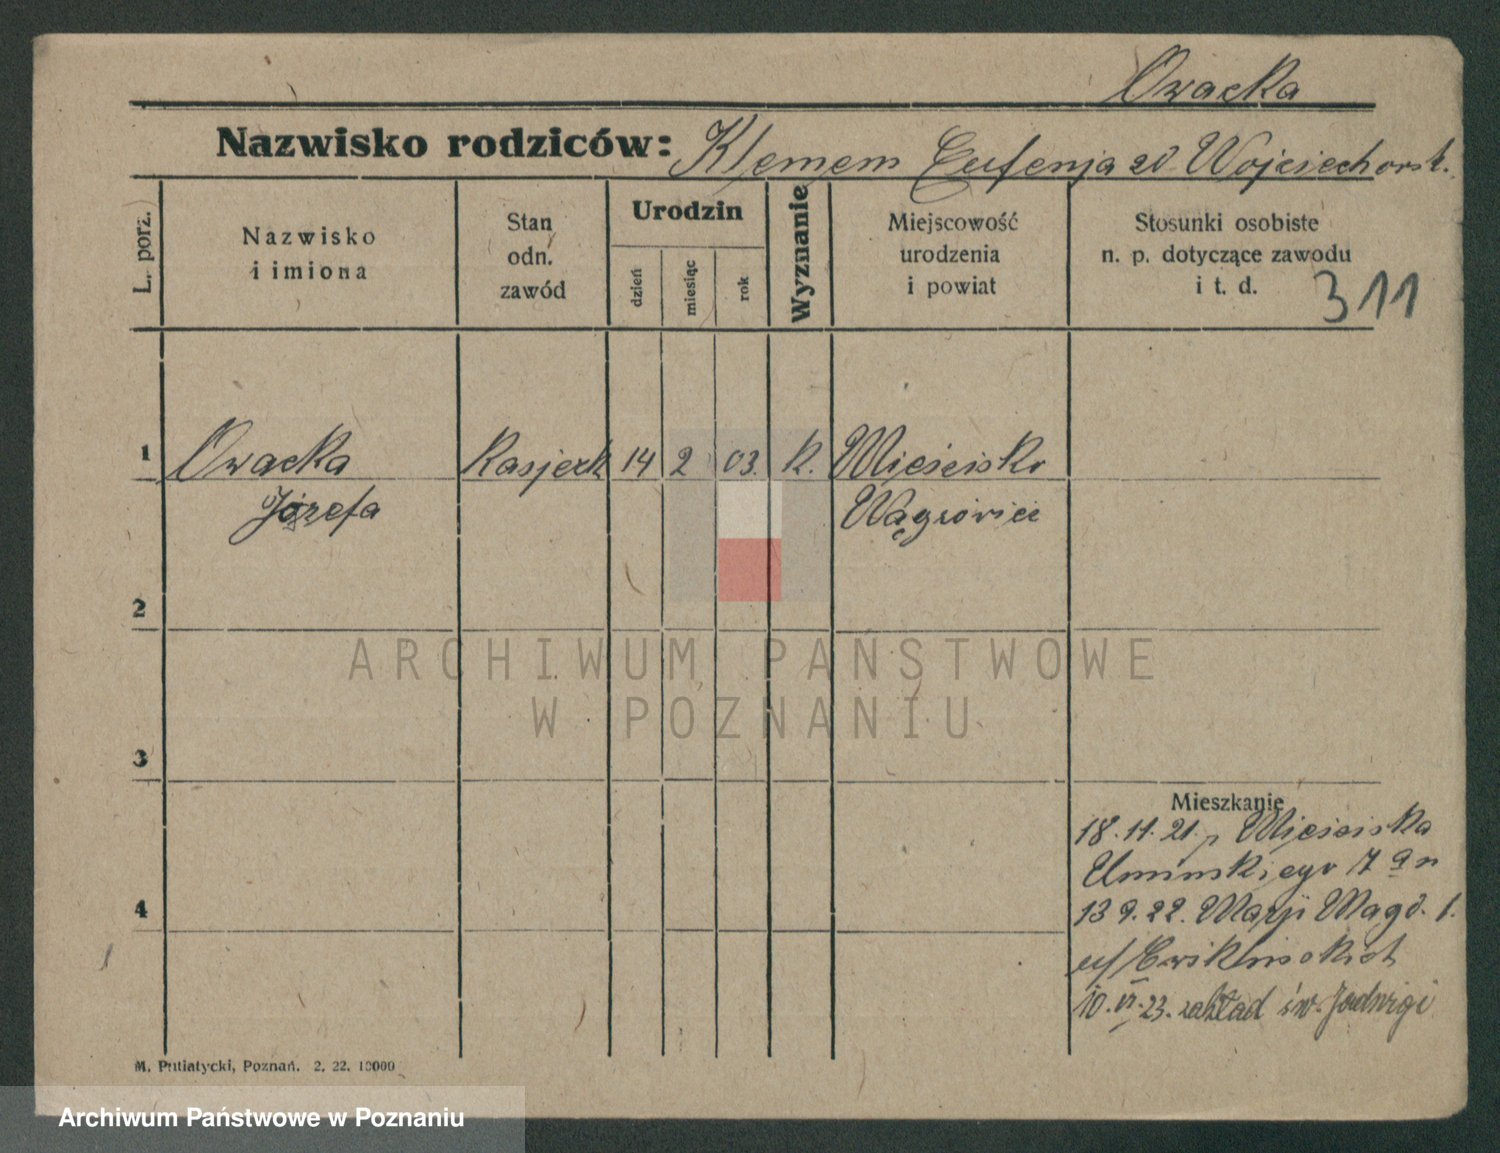 Owacka
Nazwisko rodziców: Klemem Eufenja zd Wojciechowsk.
L. porz.
Nazwisko
i imiona
Stan
odn.
zawód
Urodzin
dzień
miesiąc
rok
Wyznanie
Miejscowość
urodzenia
i powiat
Stosunki osobiste
n. p. dotyczące zawodu
i t. d.
311
1 Owacka Kasjerk 14 2 03. K. Mieścisko
Józefa Wągrowiec
2
3
4
ARCHIWUM PAŃSTWOWE
W POZNANIU
Mieszkanie
18.11.21. p Mieściska
Umińskiego 7
13 9.22. Marji Magd. 1.
u/
10.VI.23. zakład św. Jadwigi
M. Putiatycki, Poznań. 2. 22. 10000
Archiwum Państwowe w Poznaniu